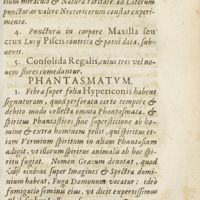 tium miraculo & Natura raritate: ad Laterum
puncturas valere Neotericorum constas experi-
mento.
4. Punctura in corpore Maxilla seu
crux Lucy Piscis contrita & potui data, sub-
uenit.
5. Consolida Regalis, cuius tres vel no-
uem flores comedantur.
PHANTASMATVM.
1. Fibra super folia Hypericonis habent
signaturam, quod perforata certo tempore &
debito modo collecta omnia Phantasmata, &
spiritus Phantasticos sine superstitione ab ho-
mine & extra hominem pellit, qui spiritus et-
iam Vermium spiritum in aliam Phantasiam
adigit, vt illorum spiritus animalis ab hoc spi-
ritu fugiat. Nomen Græcum denotat, quod
omnibus super Imagines & Spectra domi-
nium habeat, Fuga Dæmonum vocatur: ideò
fumigatio semini eius, vt dicit expertissimus